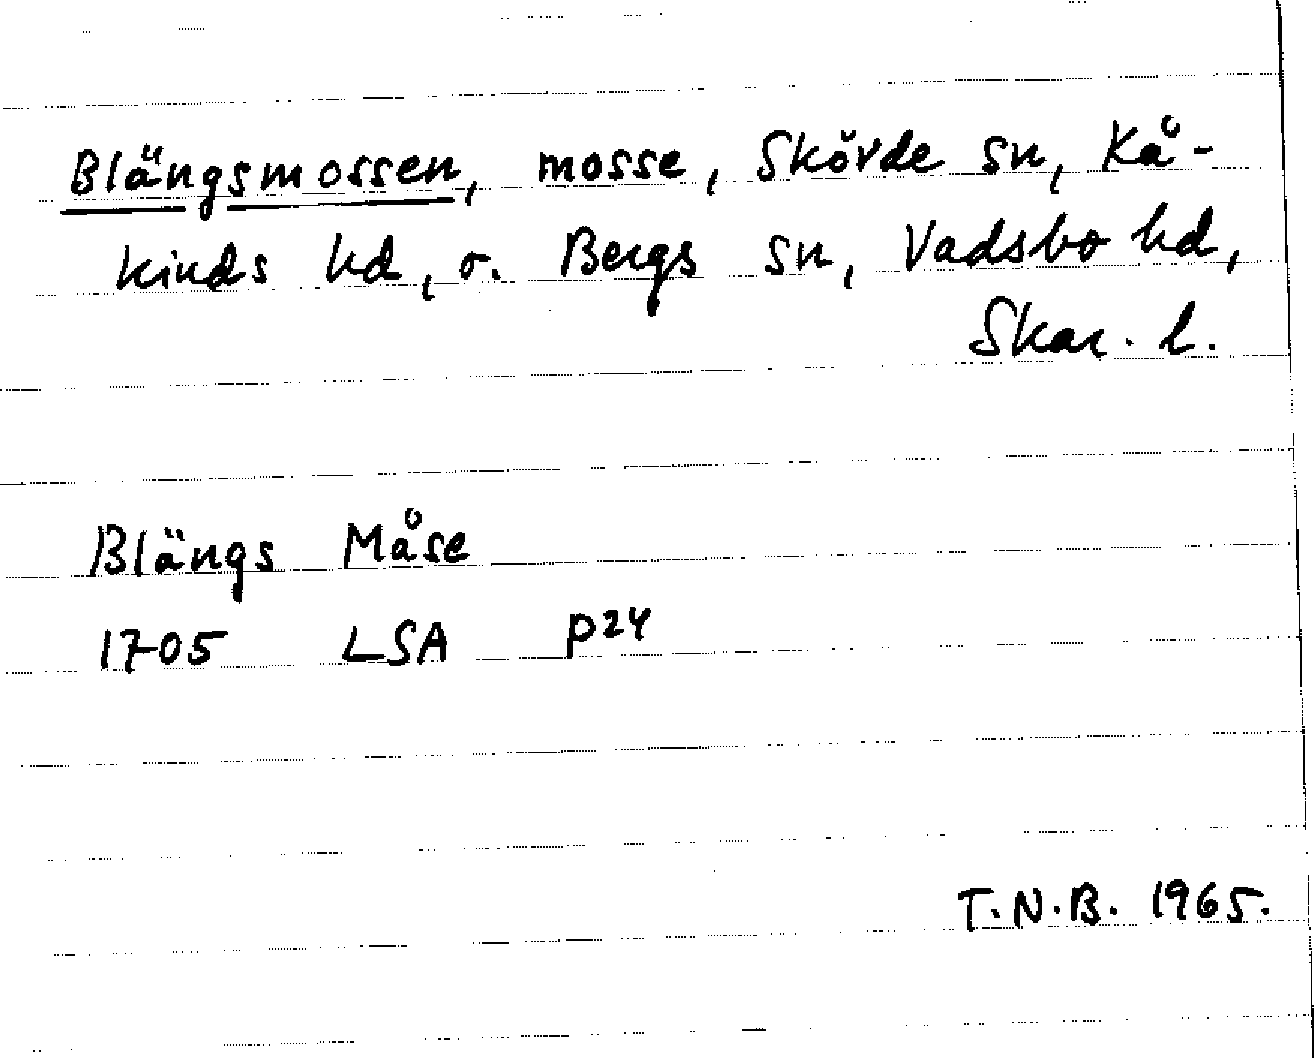 Blängsmossen, mosse, Skövde sn, Kå-
kinds hd, o. Bergs sn, Vadsbo hd,
Skar. l.
Blängs Måse
1705 LSA P24
T.N.B. 1965.